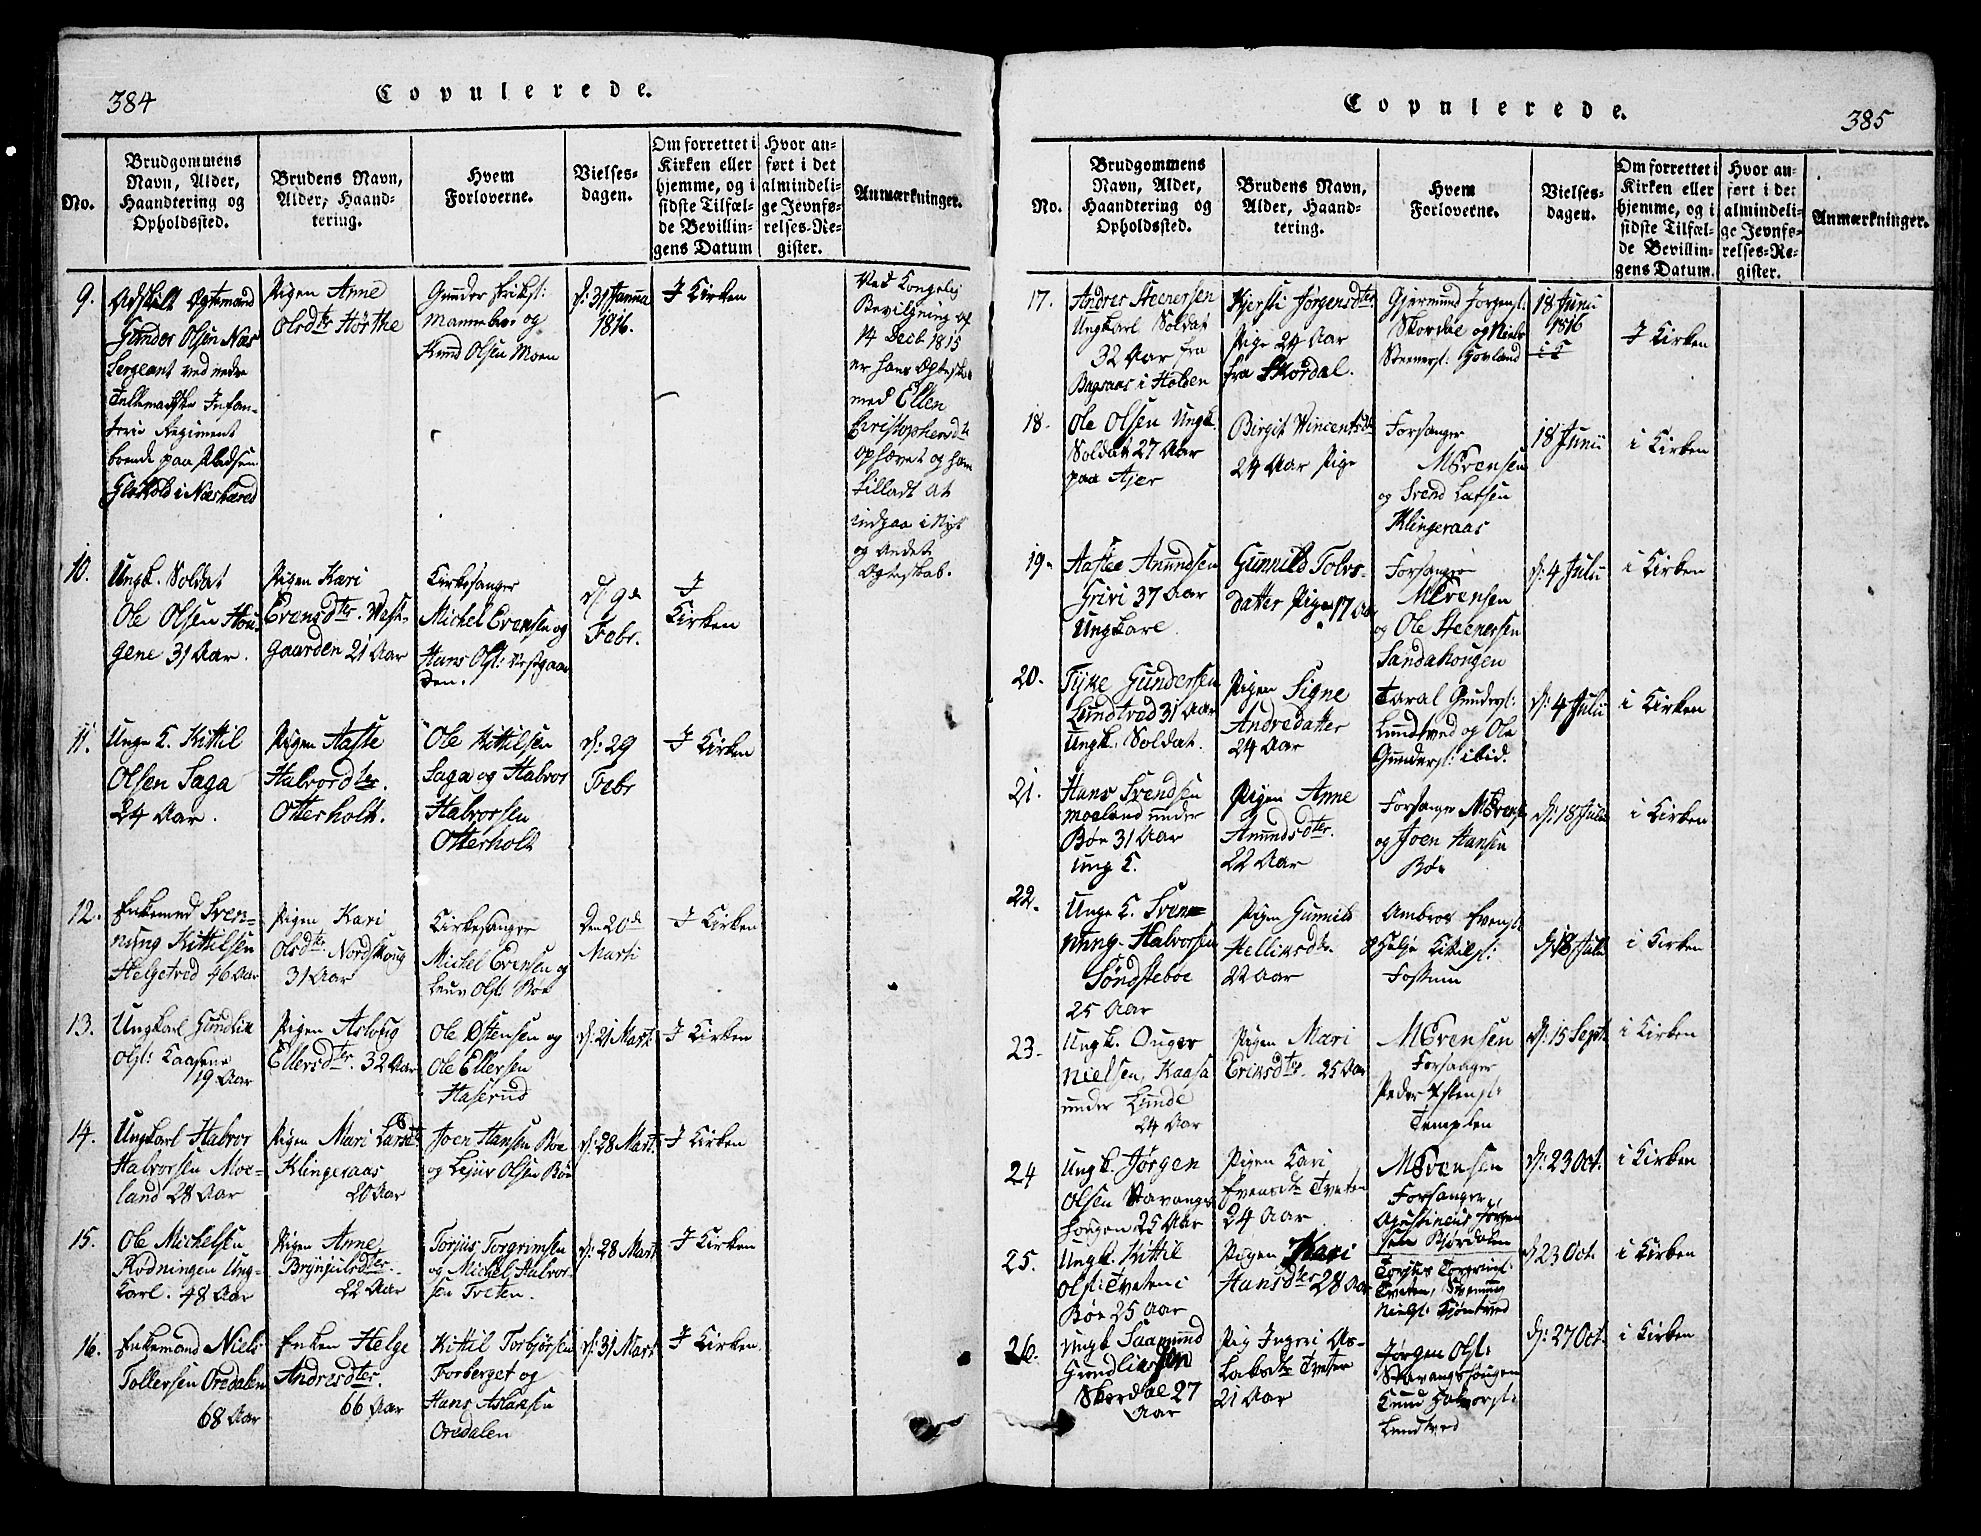 384
Copulerede.
No.
Brudgommens
Navn, Alder,
Haandtering og
Opholdssted.
Brudens Navn,
Alder, Haand-
tering.
Hvem
Forloverne.
Vielses-
dagen.
Om forrettet i
Kirken eller
hjemme, og i
sidste Tilfæl-
de Bevillin-
gens Datum
Hvor an-
ført i det
almindeli-
ge Jevnfø-
relses-Re-
gister.
Anmærkninger.
9.
Adskilt Ægtemand
Gunder Olsen Næs
Sergeant ved nedre
Tellemarkske Infan-
terie Regiment
boende paa Pladsen
i Næsherred
Pigen Anne
Olsdter Hørthe
Gunder Eriksl:
Mannebroe og
Knud Olsen Moen
d: 31 Janua
1816.
I Kirken
Ved Kongelig
Bevilgning af
14 Decb 1815
er hans Ægtesk
med Ellen
Christophersdtr
ophævet og ham
tilladt at
indgaa i Nyt
og Andet
Ægteskab.
10.
Ungk. Soldat
Ole Olsen Hou-
gene 31 Aar.
Pigen Kari
Evensdter. Vest-
gaarden 21 Aar
Kirkesanger
Michel Evensen og
Hans Olsl: Vestgaar
den.
d: 9de
Febr.
I
Kirken
11.
Unge K. Kittil
Olsen Saga
24 Aar.
Pigen Aaste
Halvordter.
Otterholt.
Ole Kittilsen
Saga og Halvor
Halvorsen
Otterholt
d: 29
Febr
I Kirken
12.
Enkemnd Sven-
nung Kittilsen
Helgetved 46 Aar
Pigen Kari
Olsdtr. Nordskoug
31 Aar
Kirkesanger
Michel Evensen og
Leuv Olsl: Bøe
Den 20de
Marti
I Kirken
13.
Ungkarl Gundlik
Olsl: Kaasene
19 Aar
Pigen Aslaug
Ellersdter. 32 Aar
Ole Østensen og
Ole Ellersen
Haserud
d: 21 Mart.
I Kirken
14.
Ungkarl Halvor
Halvorsen Moe-
land 28 Aar
Pigen Mari Larsdtr
Klingeraas
20 Aar
Joen Hansen Boe
og Lejuv Olsen Bøe
d: 28 Mart.
I Kirken
15.
Ole Michelsen
Rodningen Ung-
karl. 48 Aar
Pigen Anne
Brynjulsdter.
22 Aar
Torjus Torgrimsen
og Michel Halvor-
sen Tveten.
d: 28 Mart
I Kirken
16.
Enkemand Niels
Tollersen Oredalen
68 Aar
Enken Helge
Andresdter.
66 Aar
Kittil Torbjørsen
Forberget og
Hans Aslaksen
Oredalen
d: 31 Mart
I Kirken
385
Copulerede.
No.
Brudgommens
Navn, Alder,
Haandtering og
Opholdssted.
Brudens Navn,
Alder, Haand-
tering.
Hvem
Forloverne.
Vielses-
dagen.
Om forrettet i
Kirken eller
hjemme, og i
sidste Tilfæl-
de Bevillin-
gens Datum.
Hvor an-
ført i det
almindeli-
ge Jevnfø-
relses-Re-
gister.
Anmærkninger.
17.
Andres Steenersen
Ungkarl Soldat
32 Aar fra
Bagaas i Holden
Kjersti Jørgensdter
Pige 24 Aar
fra Skordal.
Gjermund Jorgensl:
Skordal og Niels
Steenersl: Govland
18 Junii
1816
i K
I Kirken
18.
Ole Olsen Ungk.
Soldat 27 Aar
paa Ajer
Birgit Vincentsdtr
24 Aar Pige
Forsanger
MEvensen
og Svend Larsen
Klingeraas
18 Junii
i Kirken
19.
Aaslee Amundsen
Grivi 37 Aar
Ungkarl.
Gunnild Tolvs-
datter Pige 17 Aar
Forsanger
MEvensen
og Ole Steenersen
Sandakougen
d: 4 Julii
i Kirken
20.
Tjke Gundersen
Lundtved 31 Aar
Ungk. Soldat.
Pigen Signe
Andredatter
24 Aar
Taral Gundersl:
Lundtved og Ole
Gundersl: ibid.
d: 4 Julii
i Kirken
21.
Hans Svendsen
Moeland under
Bøe 31 Aar
ung K.
Pigen Anne
Amundsdter.
22 Aar
Forsanger MEvens
og Joen Hansen
Bøe
d: 18 Julii
i Kirken
22.
Unge K. Sven-
nung Halvorsen
Søndsteboe
25 Aar
Pigen Gunnild
Helliksdtr.
22 Aar
Ambros Evensl:
Helje Kittilsl:
Fossum
d: 18 Julii
i Kirken
23.
Ungk. Ouger
Nielsen, Kaasa
under Lunde
24 Aar
Pigen Mari
Eriksdter. 25 Aar
MEvensen
Forsanger
Peder Østensl:
Templen
d: 15 Septr
i Kirken
24
Ungk. Jørgen
Olsen Stavanges
hougen 25 Aar
Pigen Kari
Evensdtr Tveten
24 Aar
MEvensen
Forsanger
Agustineus Jørgen
sen Bjørdalen
d: 23 Oct.
i Kirken
25.
Ungk. Kittil
Olsl: Tveten i
Bøe 25 Aar
Pigen Kari
Hansdter 28 Aar
Torjus Torgrimsl:
Tveten, Svennung
Nielsl: Kjøntved
d: 23 Oct.
i Kirken
26.
Ungk. Saamund
Gundliksen
Skordal 27
Aar
Pig Ingrei As-
laksdtr Tveten
21 Aar
Jørgen Olsl:
Stavangshougen
Knud Halvorsl:
Lundtved
d: 27 Oct.
i Kirken